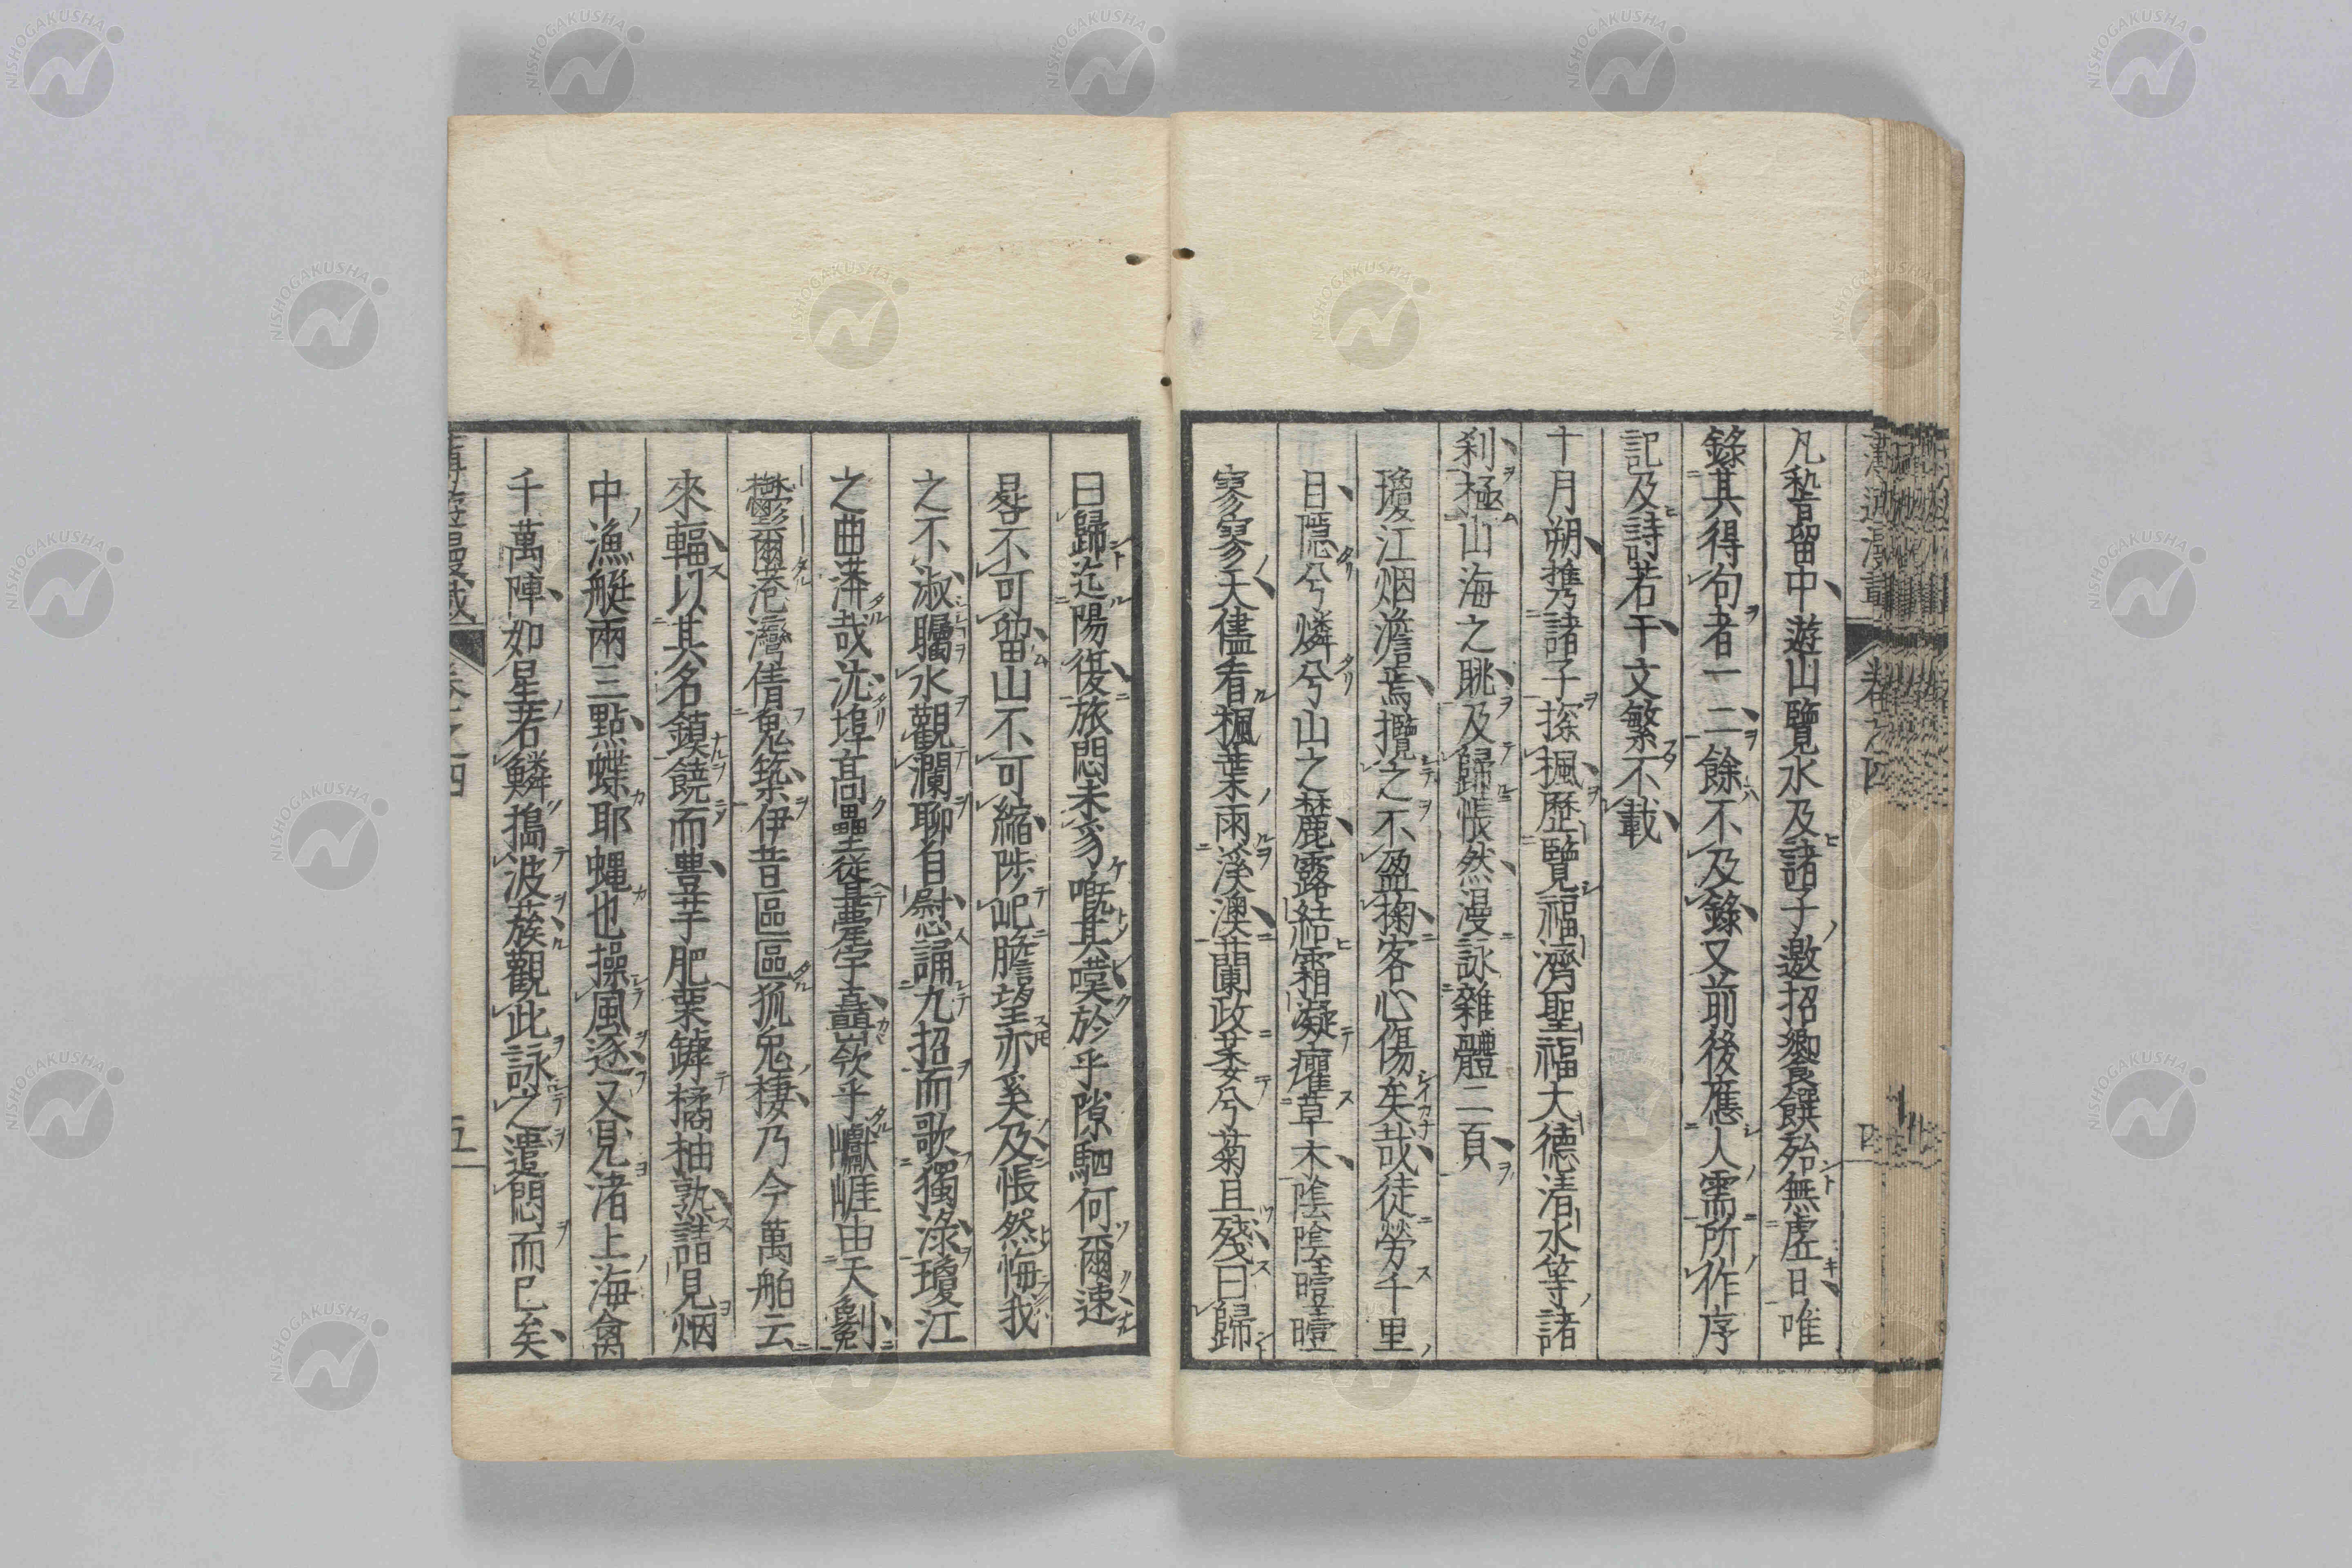 凡稅留中遊山覽水及諸子邀招饗饌殆無虛日唯
錄其得句者一二餘不及錄又前後應人需所作序
記及詩若干文繁不載
十月朔携諸子探楓歷覽福濟聖福大德清水等諸
刹極山海之眺及歸悵然漫詠雜體二頁
瓊江烟澹焉攬之不盈掬客心傷矣哉徒勞千里
目隱兮燐兮山之麓露結霜凝癯草木陰陰曀曀
寥寥天儘看楓葉雨溪澳蘭政萎兮菊且殘曰歸
曰歸迄陽復旅悶未豸嘅其嘆於乎隙駟何爾速
晷不可留山不可縮陟屺膽望亦奚及悵然悔我
之不淑矚水觀瀾聊自慰誦九招而歌獨淥瓊江
之曲漭哉沈埠高壘從臺字矗嵚乎巘崕由天劖
鬱爾港灣倩鬼築伊昔區區狐兎棲乃今萬舶云
來輻以其名鎮饒而豊芋肥栗罅橘柚熟詰見烟
中漁艇兩三點蝶耶蠅也操風逐又見渚上海禽
千萬陣如星若鱗搗波蔟觀此詠之遣悶而已矣
卷之四
五